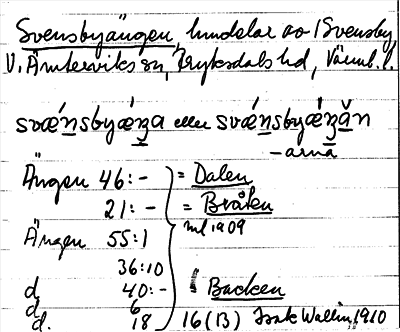 Svensbyängen, hmdelar av Svensby
V. Ämterviks sn, Fryksdals hd, Värml. l.
svǽnsbyǽŋa eller svǽnsbyǽŋǎn
– arnā
Ängen 46:- = Dalen
21:- = Bråten
Ängen 55:1 ml 1909
36:10
d 40:- Backen
d. 6
d. 18 16 (13) Isak Wallin 1910